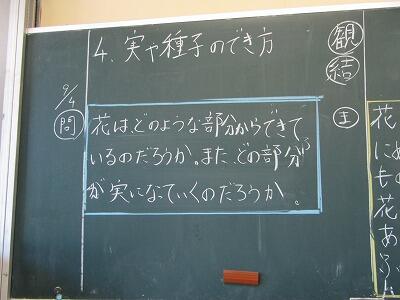 4. 実や種子のでき方
9/4
問
花は、どのような部分からできて
いるのだろうか。また、どの部分
が実になっていくのだろうか。
観
結
ま
花
にめ
もの
花
あ